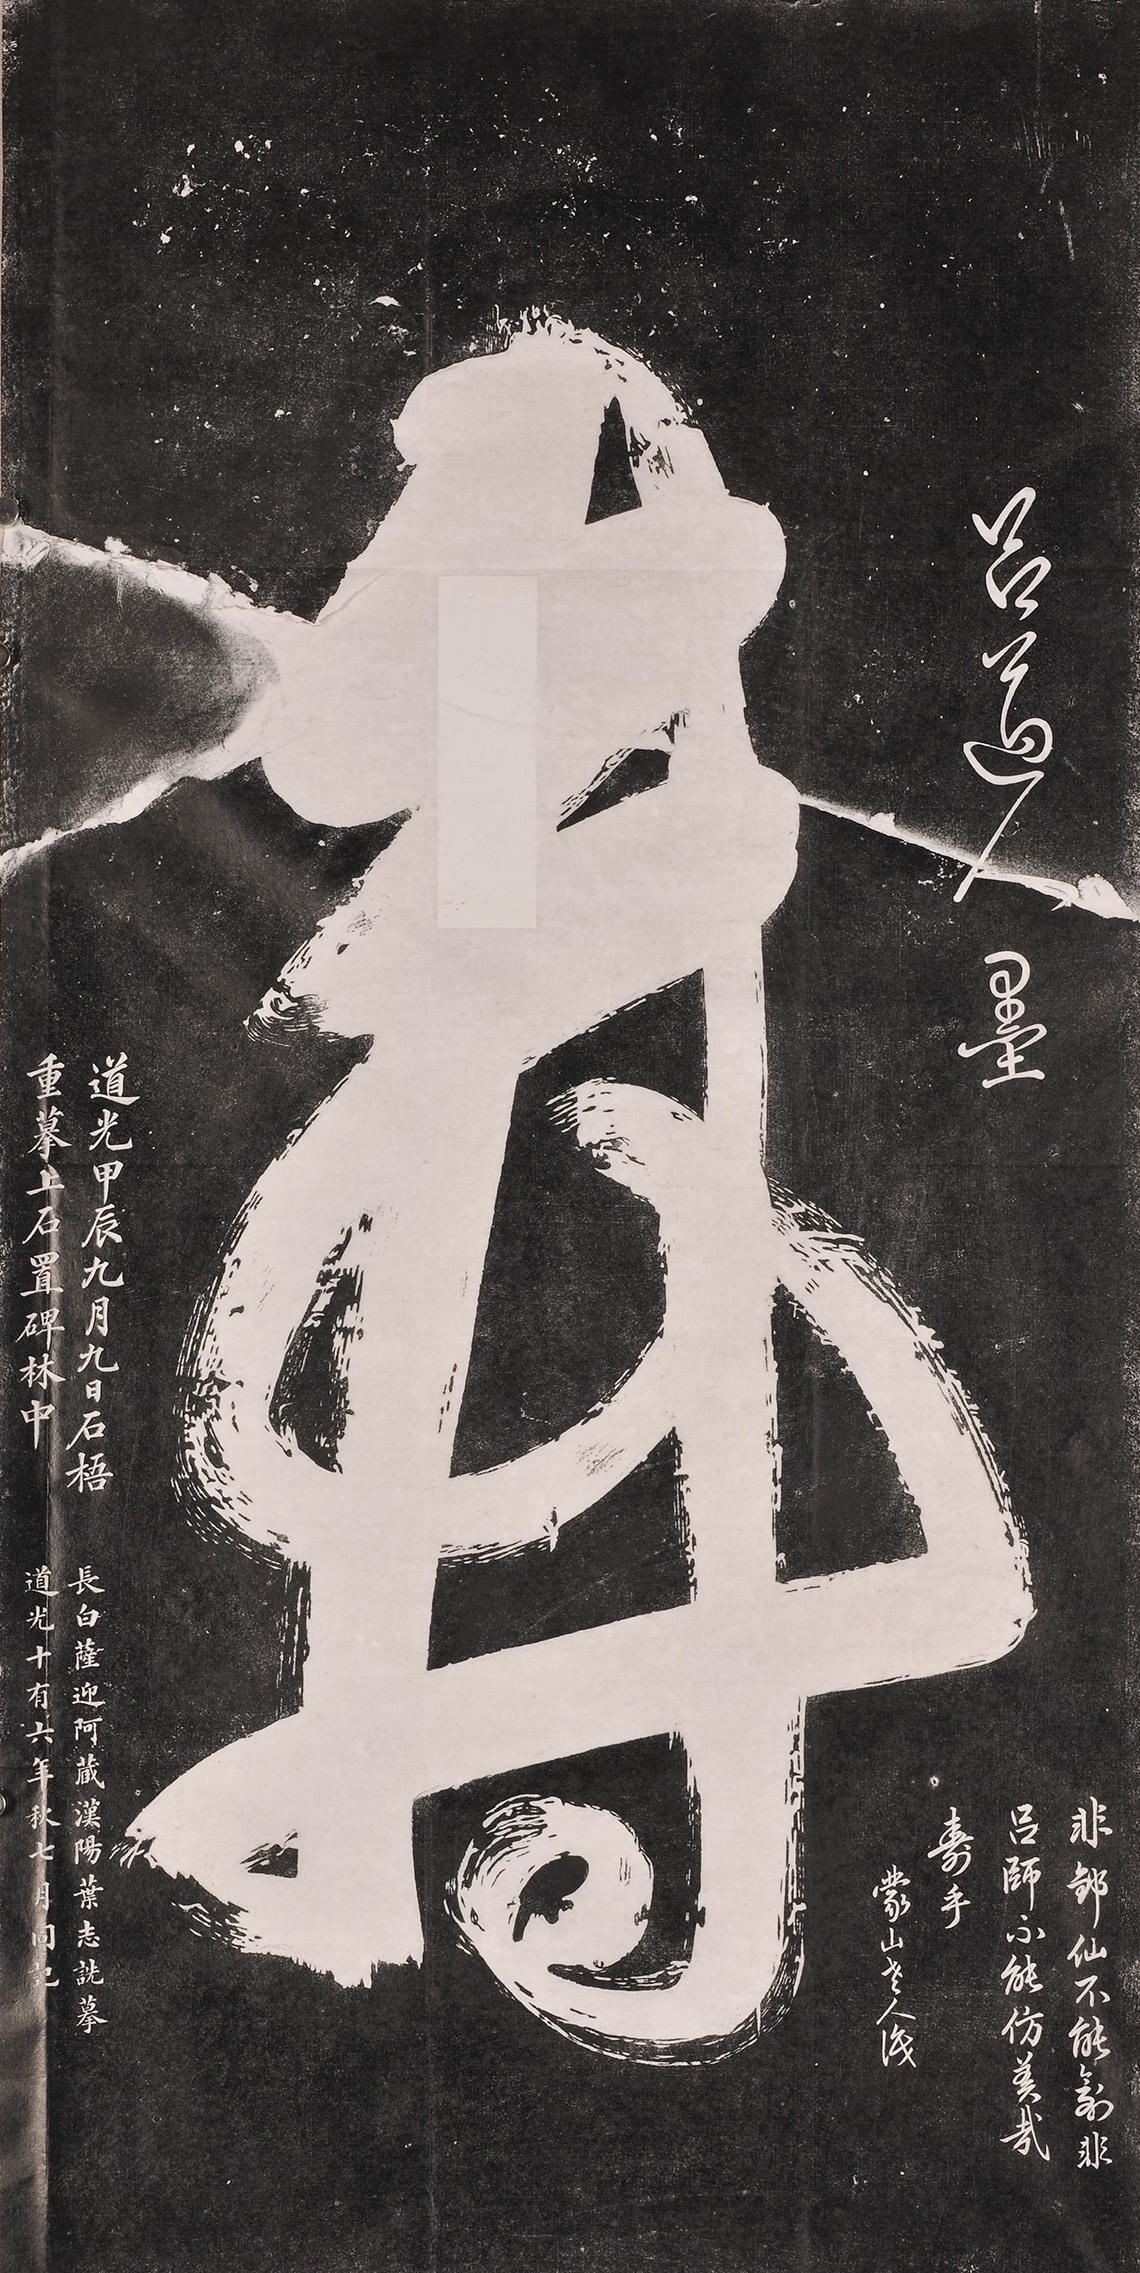 呂道人墨
非仙不能非
呂師不能仿美哉
壽乎
蒙山老人識
壽
道光甲辰九月九日石梧
重摹上石置碑林中
長白薩迎阿藏漢陽葉志詵摹
道光十有六年秋七月同記